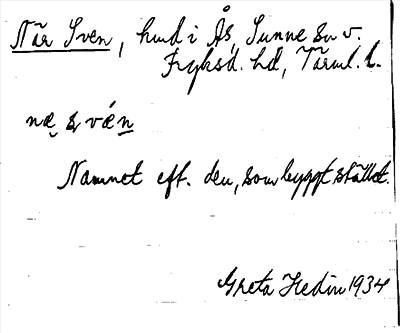 När Sven, hmd i Ås, Sunne sn v.
Fryksd. hd, Värml. l.
næ svén
Namnet eft. den, som byggt stället.
Greta Hedin 1934